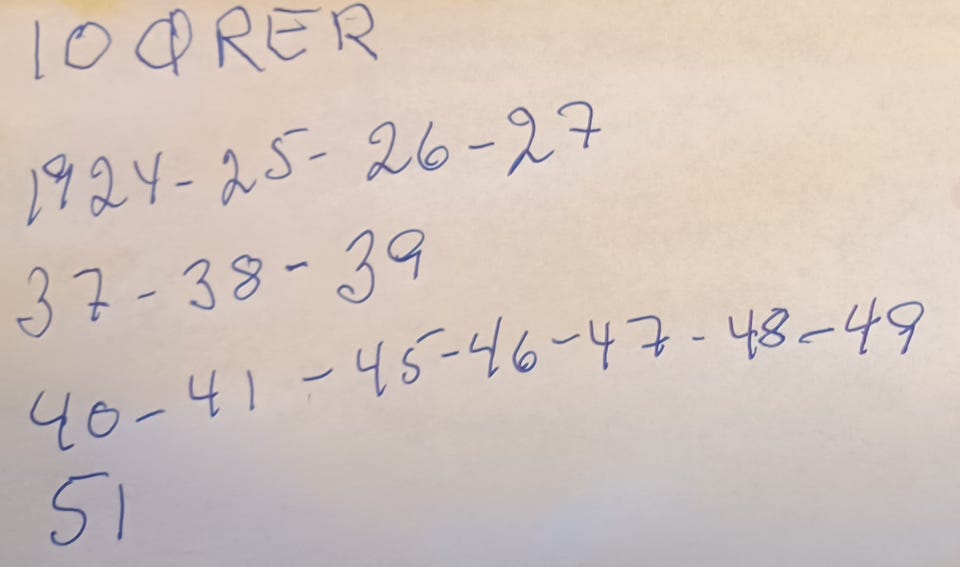 10 ØRER
1924-25-26-27
37-38-39
40-41-45-46-47-48-49
51